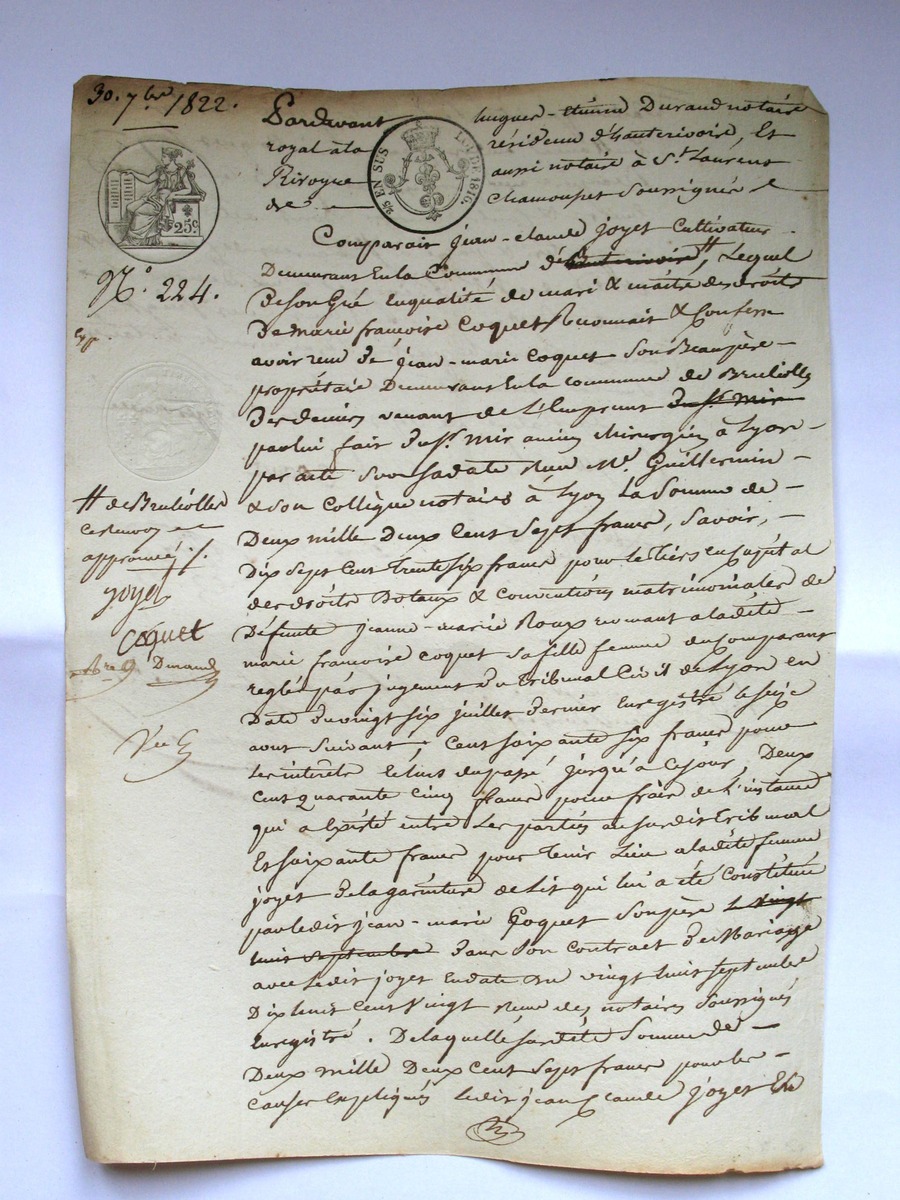 30. 7bre 1822.
Pardevant hugues - étienne Durand notaire
royal à la résidence d'hauterivoire, Et
Rivoyre aussi notaire à St. Laurent
de chamousset soussignés
25 EN SUS
LOI DE 1816.
25c
N° 224.
Comparait jean - claude joyet Cultivateur
Demeurant En la Commune d'hauterivoire #, Lequel
De son Gré En qualité de mari & maitre des droits
De marie françoise Coquet Reconnait & Confesse
avoir reçu de jean - marie Coquet son Beaupère -
propriétaire Demeurant En la commune de Brulliolles
Des deniers venant de L'Emprunt du Sr. mir
par lui fait du Sr. mir ancien chirurgien à Lyon -
par acte sous sa date Reçu Me. Guillermin -
& son Collègue notaires à Lyon La Somme de -
Deux mille Deux Cent Sept francs, Savoir, -
Dix Sept Cent trente Six francs pour le tiers En Capital
des droits Dotaux & Conventions matrimoniales de
Défunte jeanne - marie Roux revenant a ladite -
marie françoise coquet sa fille femme du Comparant
reglés par jugement du Tribunal Civil de Lyon en
Date du vingt six juillet dernier Enregistré le seize
aout Suivant ; Cent soixante six francs pour
Les interets du passé jusqu'à Cejour, Deux
Cent quarante Cinq francs pour frais de L'instance
qui a Existé entre Les parties au susdit tribunal
Et soixante francs pour tenir Lieu a ladite femme
joyet de la garniture de Lit qui lui a été Constituée
par ledit jean - marie Coquet son père le vingt
huit septembre dans son Contract de Mariage
avec Ledit joyet En date du vingt huit septembre
Dix huit Cent Vingt Reçu des notaires soussignés
Enregistré . De laquelle susdite Somme de -
Deux mille Deux Cent Sept francs pour les -
Causes Expliqués Ledit jean Claude joyet
# de Brulliolles
ce renvoy
approuvé ./.
joyet
Coquet
Durand